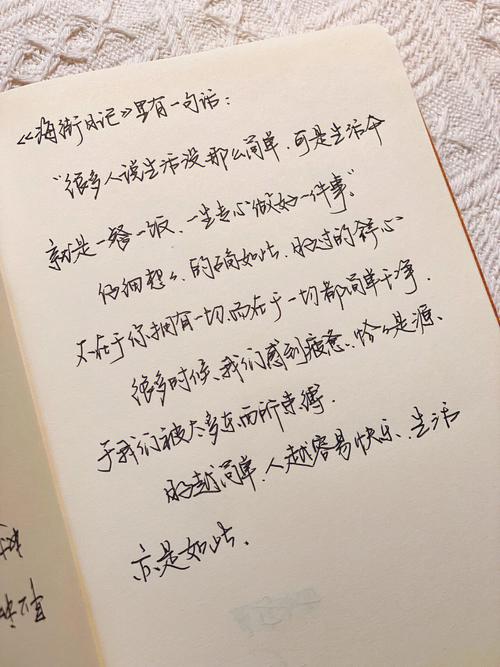 《海街日记》里有一句话：
“很多人说生活没那么简单，可是生活
就是一餐一饭，一生专心做好一件事。”
仔细想想，的确如此，日子过的舒心
不在于你拥有一切，而在于一切都简单干净。
很多时候，我们感到疲惫，恰恰是源
于我们被太多东西所束缚。
越简单，人越容易快乐、生活
亦是如此。